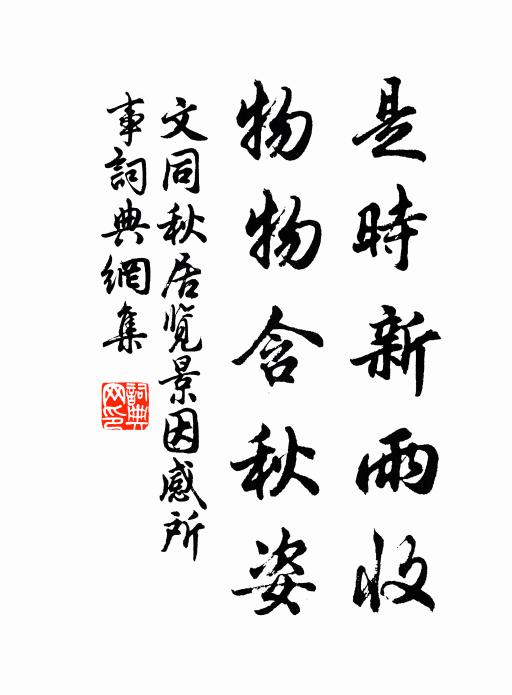 是時新雨收
物物含秋姿
文同秋居覽景因感所
事詞典網集
詞典網印